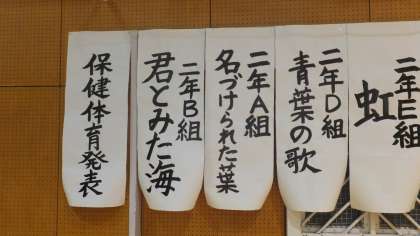 二年E組
虹
二年D組
青葉の歌
二年A組
名づけられた葉
二年B組
君とみた海
保健体育発表